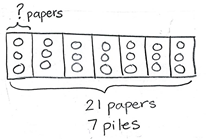 ? papers
21 papers
7 piles